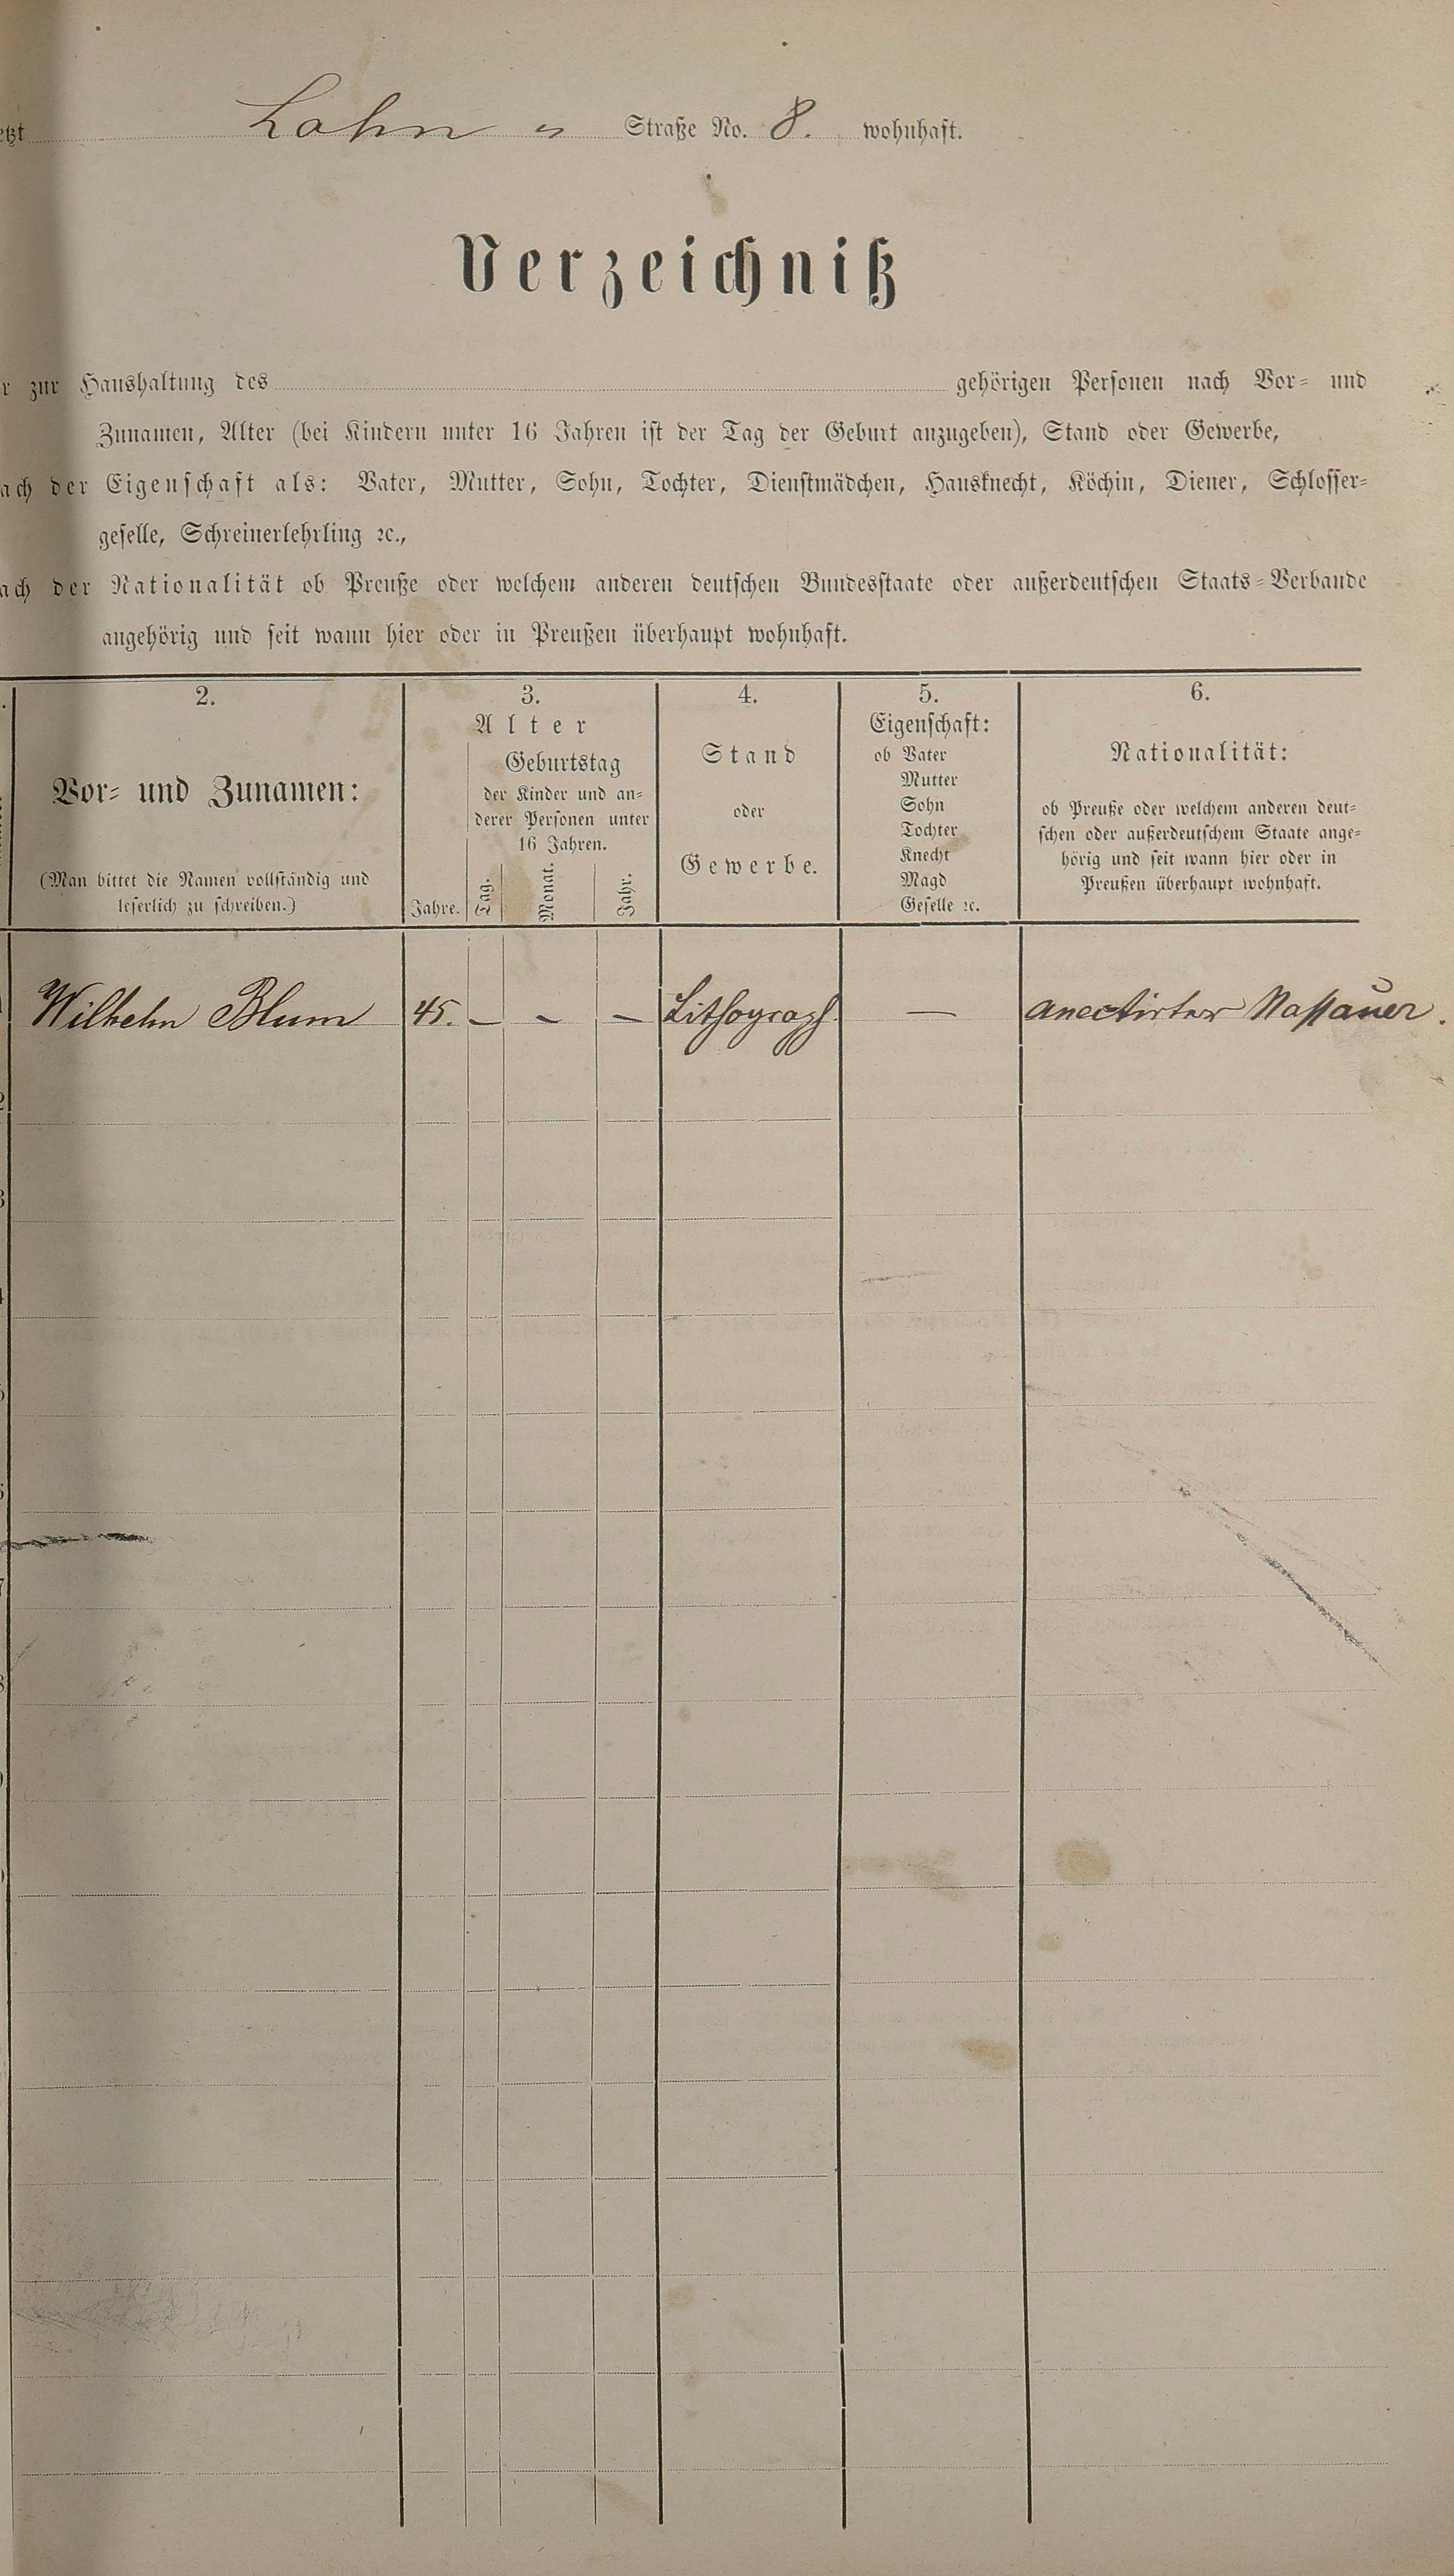 etzt Lahn " Straße No. 8. wohnhaft.
Verzeichniß
r zur Haushaltung des gehörigen Personen nach Vor- und
Zunamen, Alter (bei Kindern unter 16 Jahren ist der Tag der Geburt anzugeben), Stand oder Gewerbe,
ach der Eigenschaft als: Vater, Mutter, Sohn, Tochter, Dienstmädchen, Hausknecht, Köchin, Diener, Schlosser-
geselle, Schreinerlehrling ꝛc.,
ach der Nationalität ob Preuße oder welchem anderen deutschen Bundesstaate oder außerdeutschen Staats-Verbande
angehörig und seit wann hier oder in Preußen überhaupt wohnhaft.
2.
Vor- und Zunamen:
(Man bittet die Namen vollständig und
leserlich zu schreiben.)
3.
Alter
Geburtstag
der Kinder und an-
derer Personen unter
16 Jahren.
Jahre. Tag. Monat. Jahr.
4.
Stand
oder
Gewerbe.
5.
Eigenschaft:
ob Vater
Mutter
Sohn
Tochter
Knecht
Magd
Geselle ꝛc.
6.
Nationalität:
ob Preuße oder welchem anderen deut-
schen oder außerdeutschem Staate ange-
hörig und seit wann hier oder in
Preußen überhaupt wohnhaft.
Wilhelm Blum 45. – – – Lithograph — anectirter Nassauer.